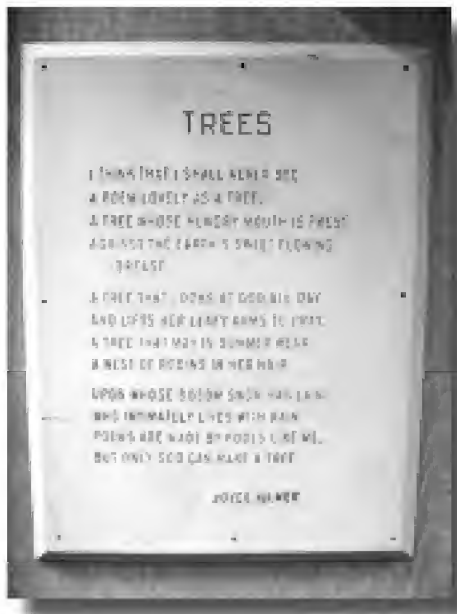 TREES
I THINK THAT I SHALL NEVER SEE
A POEM LOVELY AS A TREE.
A TREE WHOSE HUNGRY MOUTH IS PREST
AGAINST THE EARTH'S SWEET FLOWING
BREAST
A TREE THAT LOOKS AT GOD ALL DAY
AND LIFTS HER LEAFY ARMS TO PRAY.
A TREE THAT MAY IN SUMMER WEAR
A NEST OF ROBINS IN HER HAIR
UPON WHOSE BOSOM SNOW HAS LAIN
WHO INTIMATELY LIVES WITH RAIN
POEMS ARE MADE BY FOOLS LIKE ME,
BUT ONLY GOD CAN MAKE A TREE
JOYCE KILMER